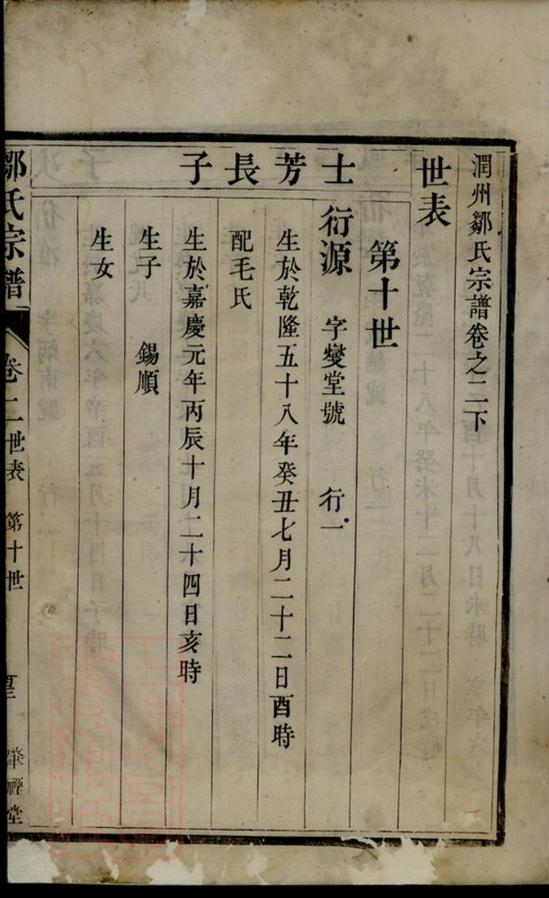 潤州鄒氏宗譜卷之二下
世表
第十世
士芳長子
衍源　字燮堂號　行一
生於乾隆五十八年癸丑七月二十二日酉時
配毛氏
生於嘉慶元年丙辰十月二十四日亥時
生子　錫順
生女
鄒氏宗譜　卷二　世表　第十世